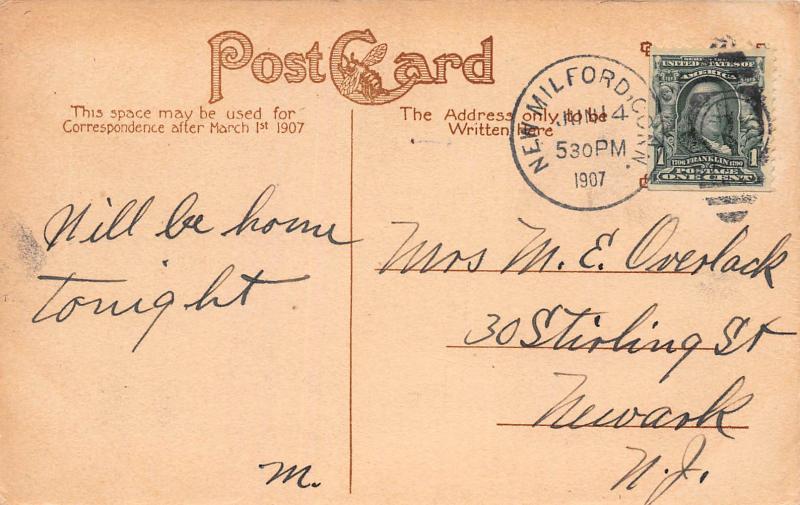 Post Card
This space may be used for
Correspondence after March 1st 1907
The Address only to be
Written here
NEW MILFORD, CONN.
JUN 14
530 PM
1907
SERIES 1902
UNITED STATES OF
AMERICA
1706 FRANKLIN 1790
POSTAGE
1 ONE CENT 1
Will be home
tonight
M.
Mrs M. E. Overlack
30 Stirling St
Newark
N.J.